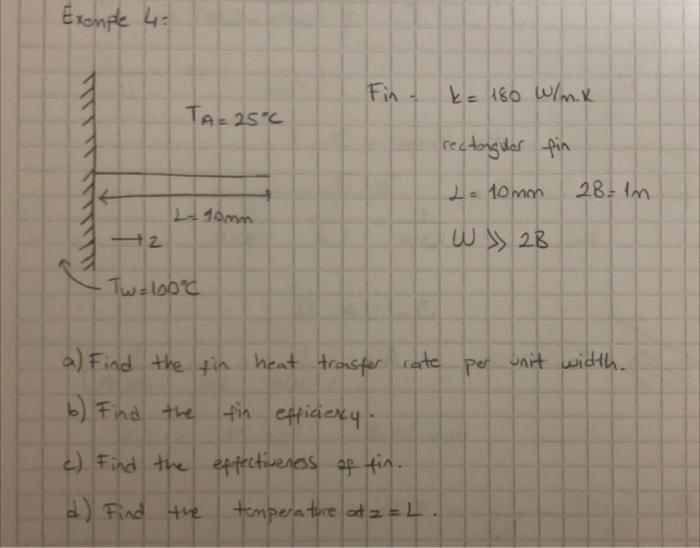 Example 4:
Fin - k = 180 W/m.K
T_A = 25°C
rectangular fin
L = 10mm 2B = 1m
L = 10mm
W >> 2B
→ z
T_W = 100°C
a) Find the fin heat transfer rate per unit width.
b) Find the fin efficiency.
c) Find the effectiveness of fin.
d) Find the temperature at z = L.